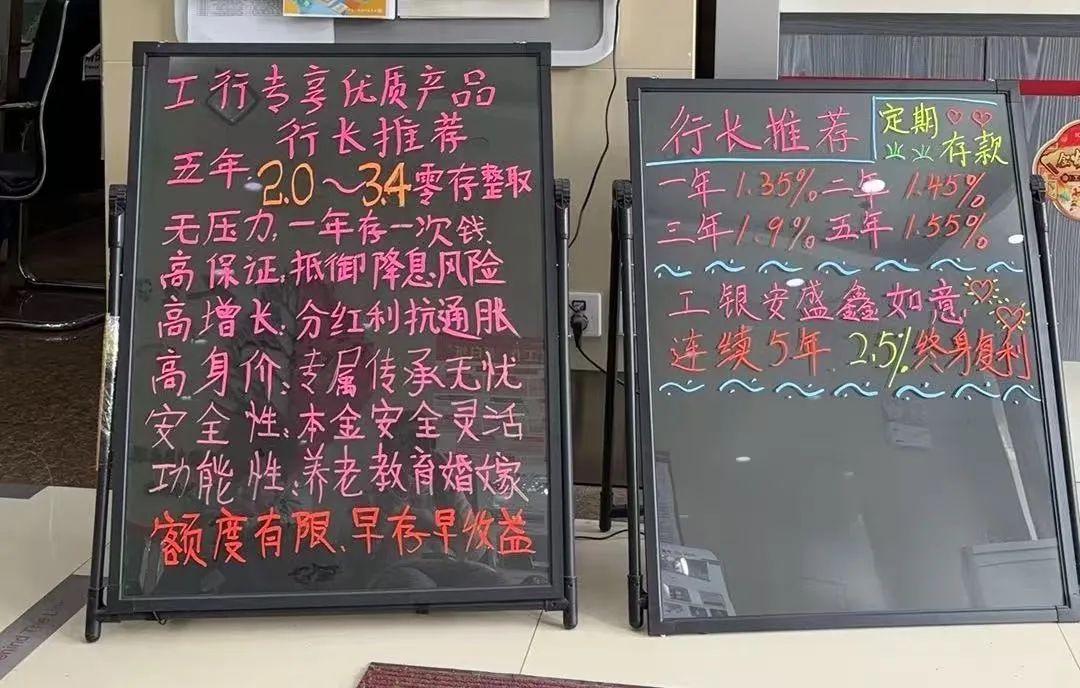 工行专享优质产品
行长推荐
五年 2.0～3.4 零存整取
无压力,一年存一次钱
高保证,抵御降息风险
高增长,分红利抗通胀
高身价:专属传承无忧
安全性:本金安全灵活
功能性:养老教育婚嫁
额度有限,早存早收益
行长推荐
定期
存款
一年1.35% 二年 1.45%
三年1.9% 五年 1.55%
工银安盛鑫如意
连续5年 2.5%终身复利
ehind The Li